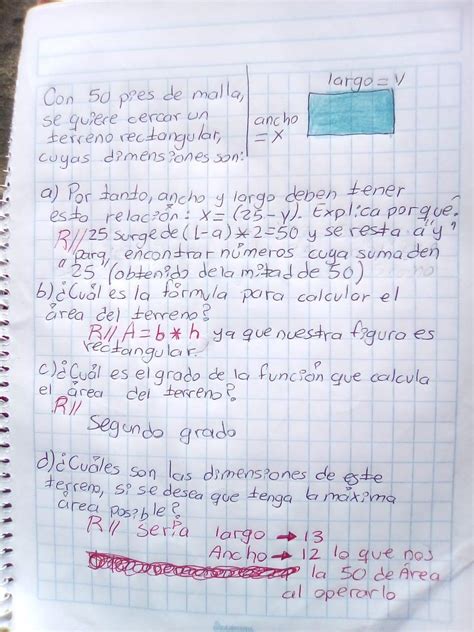 Con 50 pies de malla,
se quiere cercar un
terreno rectangular,
cuyas dimensiones son:
largo = y
ancho
= x
a) Por tanto, ancho y largo deben tener
esta relación: x = (25 - y). Explica por qué.
R// 25 surge de (l-a) * 2 = 50 y se resta a "y"
para, encontrar números cuya suma den
25 (obtenido de la mitad de 50)
b) ¿Cuál es la fórmula para calcular el
área del terreno?
R// A = b * h ya que nuestra figura es
rectangular.
c) ¿Cuál es el grado de la función que calcula
el área del terreno?
R//
Segundo grado
d) ¿Cuáles son las dimensiones de este
terreno, si se desea que tenga la máxima
área posible?
R// Sería largo → 13
Ancho → 12 lo que nos
la 50 de Área
al operarlo